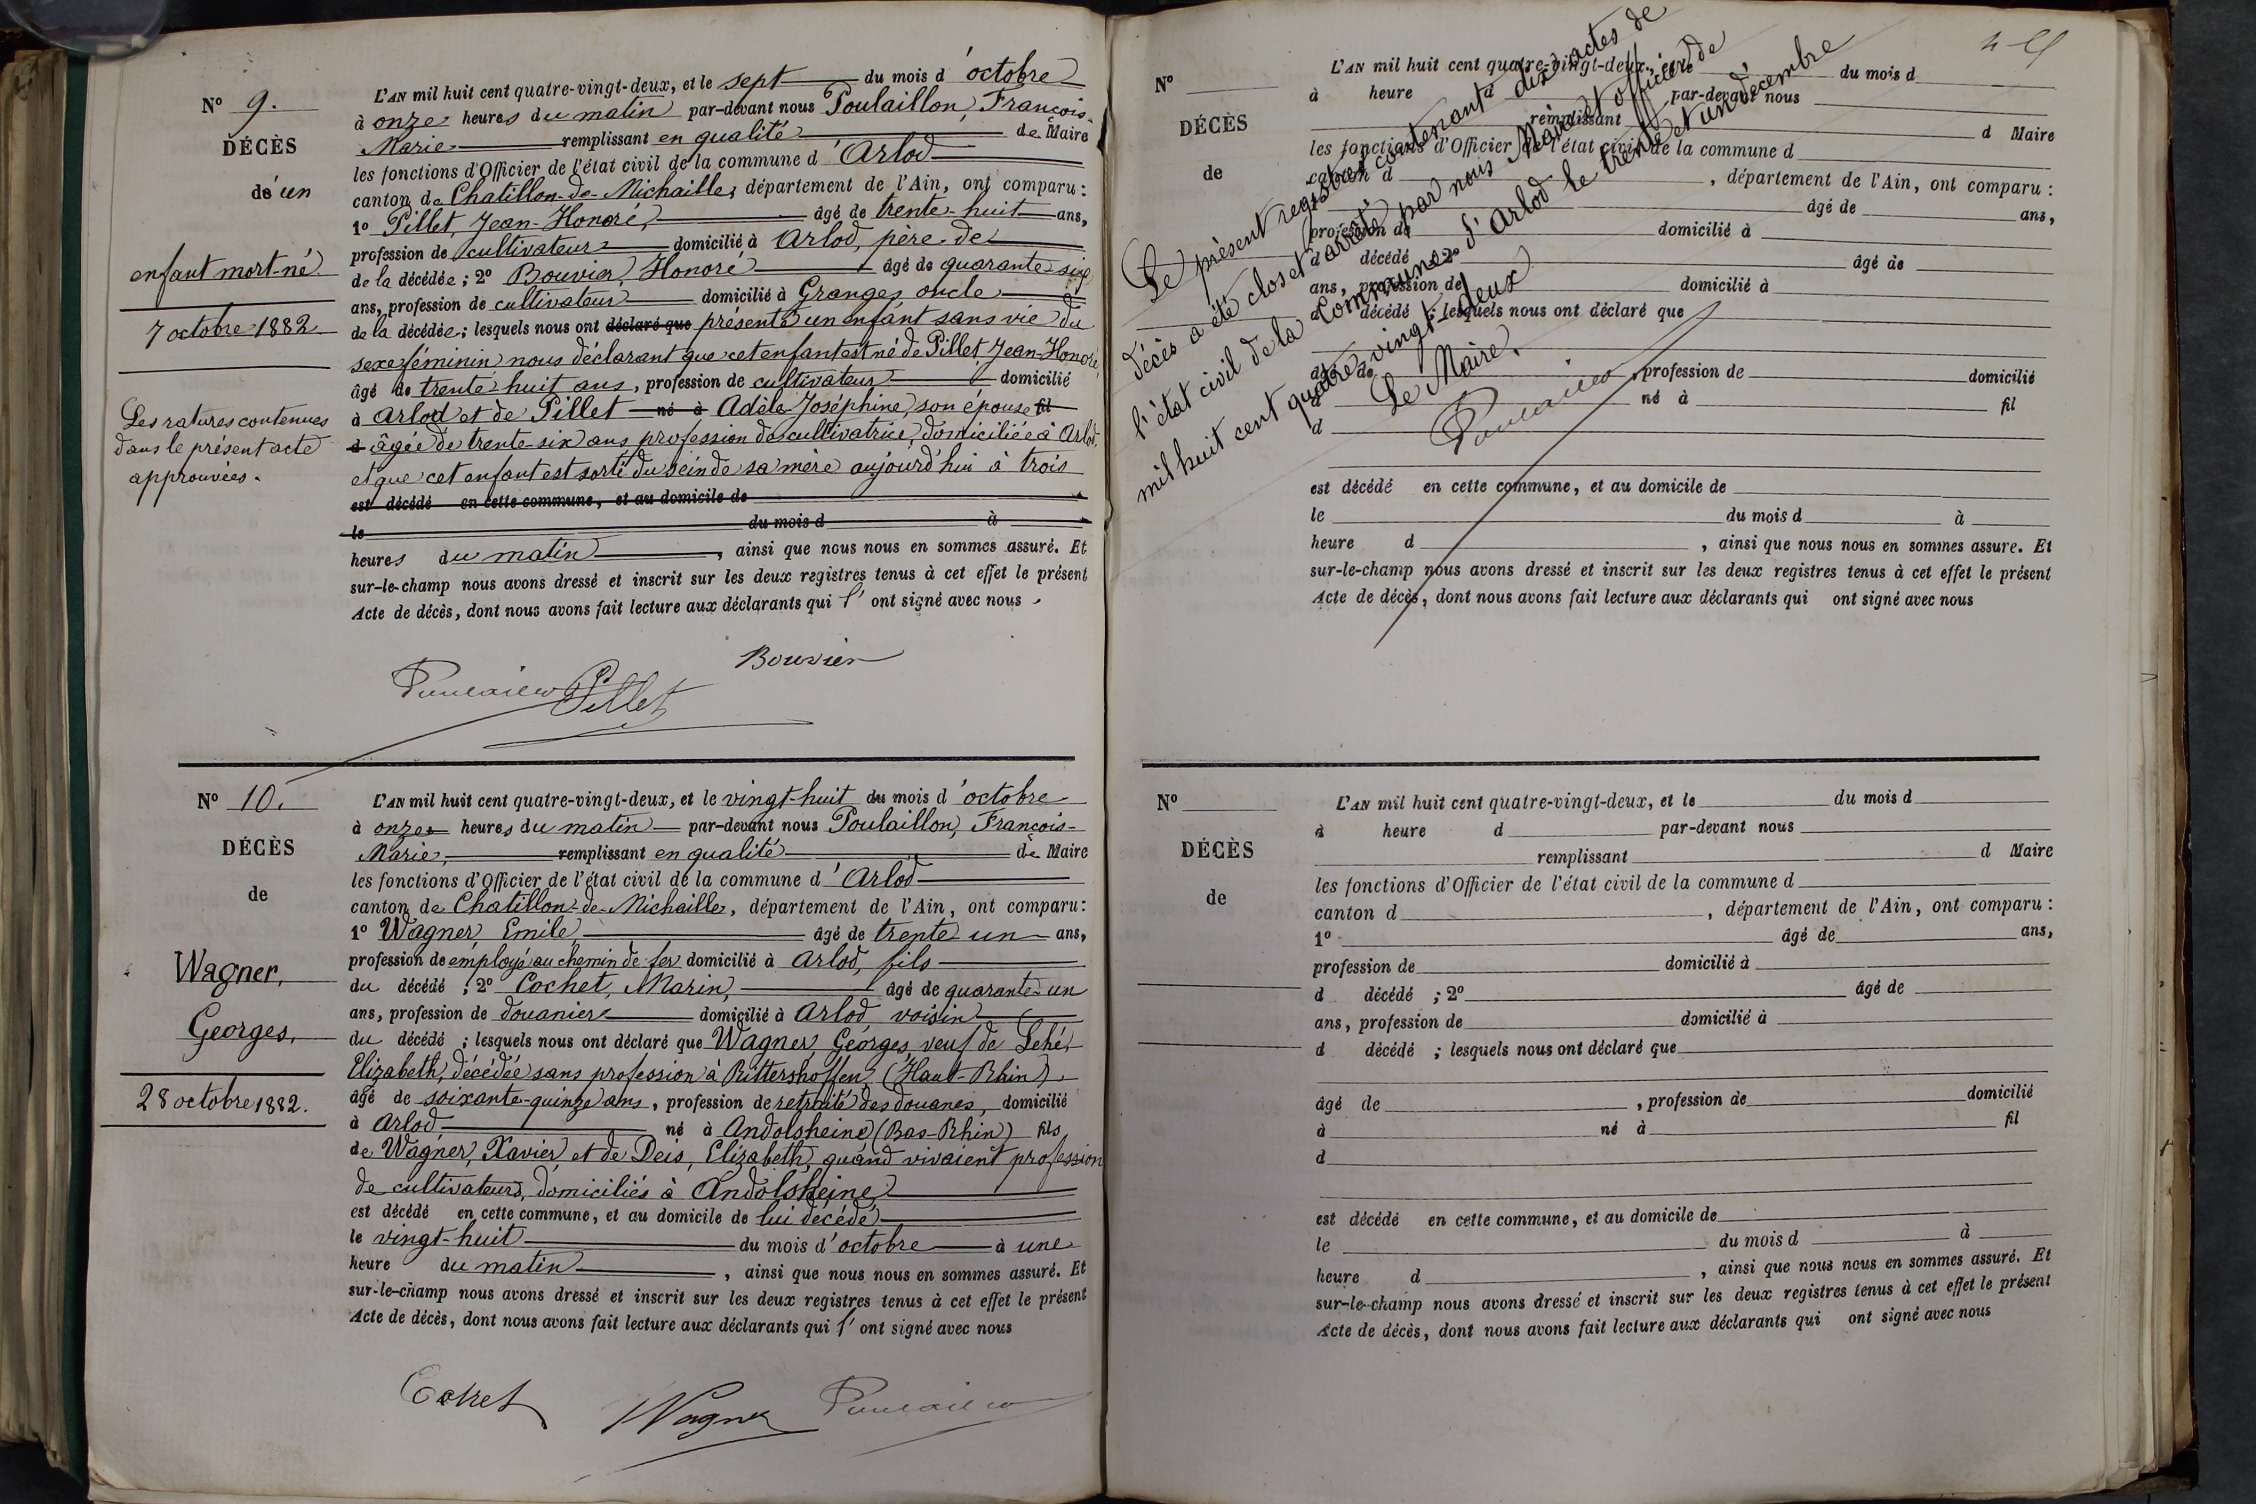 N° 9.
DÉCÈS
de un
enfant mort-né
7 octobre 1882
Les ratures contenues
dans le présent acte
approuvées.
L'AN mil huit cent quatre-vingt-deux, et le sept du mois d'octobre
à onze heures du matin par-devant nous Poulaillon, François-
Marie remplissant en qualité de Maire
les fonctions d'Officier de l'état civil de la commune d'Arlod
canton de Chatillon-de-Michaille, département de l'Ain, ont comparu :
1° Pillet, Jean-Honoré, âgé de trente-huit ans,
profession de cultivateur domicilié à Arlod, père de
de la décédée ; 2° Bouvier, Honoré âgé de quarante six
ans, profession de cultivateur domicilié à Granges oncle
de la décédée ; lesquels nous ont déclaré que présenté un enfant sans vie du
sexe féminin nous déclarant que cet enfant est né de Pillet Jean-Honoré,
âgé de trente huit ans, profession de cultivateur domicilié
à Arlod et de Pillet né à Adèle Joséphine, son épouse fil
d âgée de trente-six ans profession de cultivatrice, domiciliée à Arlod.
et que cet enfant est sorti du sein de sa mère aujourd'hui à trois
est décédé en cette commune, et au domicile de
le du mois d à
heures du matin, ainsi que nous nous en sommes assuré. Et
sur-le-champ nous avons dressé et inscrit sur les deux registres tenus à cet effet le présent
Acte de décès, dont nous avons fait lecture aux déclarants qui l'ont signé avec nous.
Bouvier
Poulaillon Pillet
N° 10.
DÉCÈS
de
Wagner,
Georges,
28 octobre 1882.
L'AN mil huit cent quatre-vingt-deux, et le vingt-huit du mois d'octobre
à onze heures du matin par-devant nous Poulaillon, François-
Marie, remplissant en qualité de Maire
les fonctions d'Officier de l'état civil de la commune d'Arlod
canton de Chatillon-de-Michaille, département de l'Ain, ont comparu :
1° Wagner, Emile, âgé de trente un ans,
profession de employé au chemin de fer domicilié à Arlod, fils
du décédé ; 2° Cochet, Marin, âgé de quarante-un
ans, profession de douanier domicilié à Arlod voisin
du décédé ; lesquels nous ont déclaré que Wagner, Georges, veuf de Lehé,
Elizabeth, décédée sans profession à Rittershoffen, (Haut-Rhin),
âgé de soixante-quinze ans, profession de retraité des douanes, domicilié
à Arlod, né à Andolsheine (Bas-Rhin) fils
de Wagner, Xavier et de Deis, Elizabeth, quand vivaient profession
de cultivateurs, domiciliés à Andolsheine
est décédé en cette commune, et au domicile de lui décédé
le vingt-huit du mois d'octobre à une
heure du matin, ainsi que nous nous en sommes assuré. Et
sur-le-champ nous avons dressé et inscrit sur les deux registres tenus à cet effet le présent
Acte de décès, dont nous avons fait lecture aux déclarants qui l'ont signé avec nous
Cochet Wagner Poulaillon
N°
DÉCÈS
de
L'AN mil huit cent quatre-vingt-deux, et le du mois d
à heure d par-devant nous
remplissant d Maire
les fonctions d'Officier de l'état civil de la commune d
canton d, département de l'Ain, ont comparu :
1° âgé de ans,
profession de domicilié à
d décédé ; 2° âgé de
ans, profession de domicilié à
d décédé ; lesquels nous ont déclaré que
âgé de, profession de domicilié
à né à fil
d
est décédé en cette commune, et au domicile de
le du mois d à
heure d, ainsi que nous nous en sommes assuré. Et
sur-le-champ nous avons dressé et inscrit sur les deux registres tenus à cet effet le présent
Acte de décès, dont nous avons fait lecture aux déclarants qui ont signé avec nous
Le présent registre contenant dix actes de
décès a été clos et arrêté par nous Maire et officier de
l'état civil de la Commune d'Arlod le trente et un décembre
mil huit cent quatre vingt-deux
Le Maire,
Poulaillon
N°
DÉCÈS
de
L'AN mil huit cent quatre-vingt-deux, et le du mois d
à heure d par-devant nous
remplissant d Maire
les fonctions d'Officier de l'état civil de la commune d
canton d, département de l'Ain, ont comparu :
1° âgé de ans,
profession de domicilié à
d décédé ; 2° âgé de
ans, profession de domicilié à
d décédé ; lesquels nous ont déclaré que
âgé de, profession de domicilié
à né à fil
d
est décédé en cette commune, et au domicile de
le du mois d à
heure d, ainsi que nous nous en sommes assuré. Et
sur-le-champ nous avons dressé et inscrit sur les deux registres tenus à cet effet le présent
Acte de décès, dont nous avons fait lecture aux déclarants qui ont signé avec nous